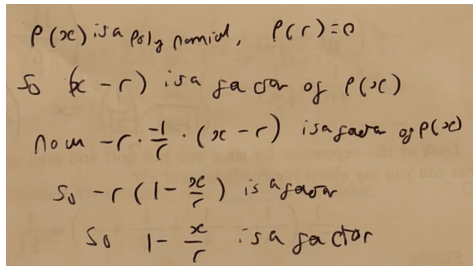 P(x) is a polynomial, P(r)=0
So (x - r) is a factor of P(x)
now -r · \frac{-1}{r} · (x - r) is a factor of P(x)
So -r (1 - \frac{x}{r}) is a factor
So 1 - \frac{x}{r} is a factor